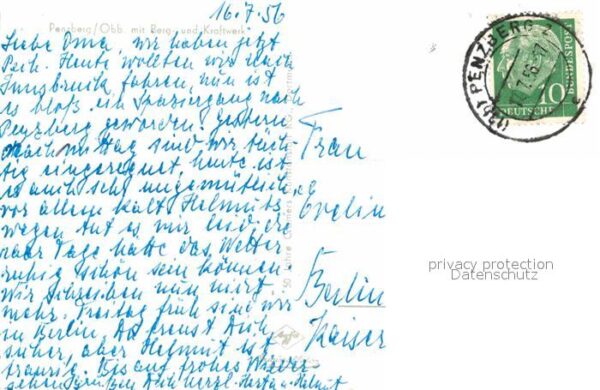 16.7.56
Penzberg/Obb. mit Berg- und Kraftwerk
Liebe Oma, wir haben jetzt
Pech. Heute wollten wir nach
Innsbruck fahren, nun ist
es bloß ein Spaziergang nach
Penzberg geworden. Gestern
Nachmittag sind wir tüch-
tig eingeregnet, heute ist
es auch sehr ungemütlich,
vor allem kalt. Helmuts
wegen tut es mir leid, die
paar Tage hätte das Wetter
ruhig schön sein können.
Wir schreiben nun nicht
mehr. Freitag früh sind wir
in Berlin, Du freust Dich
sicher, aber Helmut ist
traurig. Bis auf frohes Wieder-
sehen grüßen Dich herzl. Herta u. Helmut
Frau
Evelin
Berlin
Kaiser
50 Jahre
(13b) PENZBERG
10
DEUTSCHE
BUNDESPOST
privacy protection
Datenschutz
Agfa